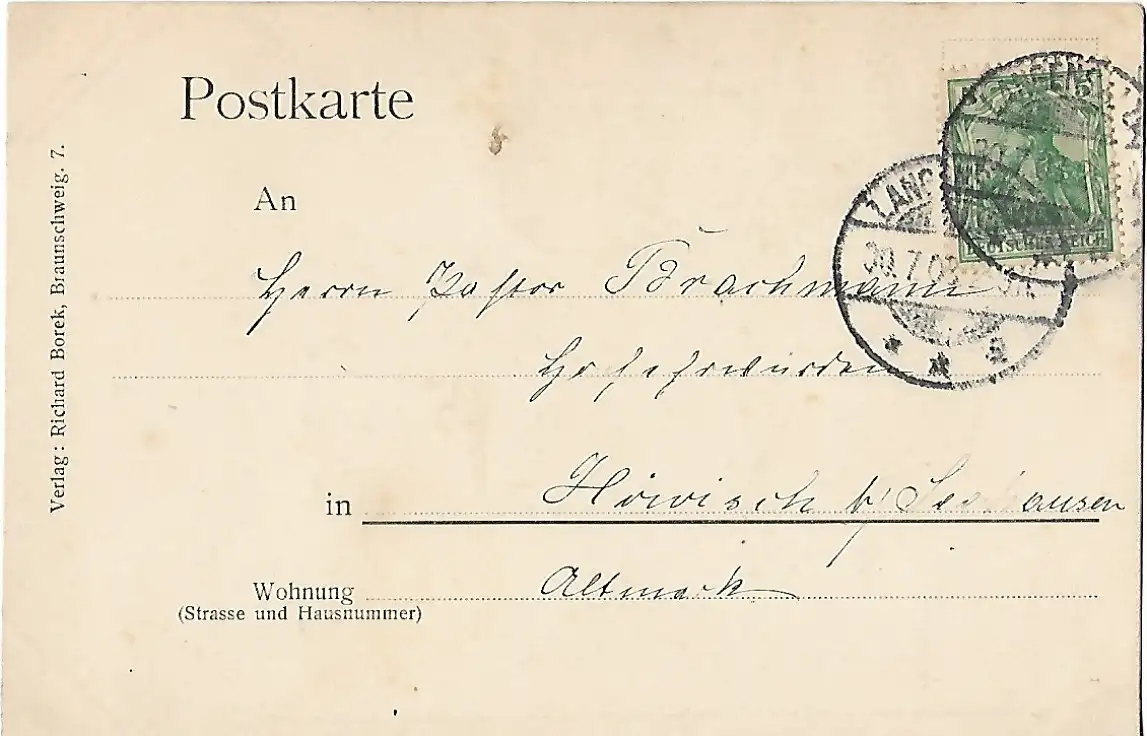 Postkarte
An
Herrn Pastor Brachmann
Hochehrwürden
in Höwisch b/ Seehausen
Wohnung Altmark
(Strasse und Hausnummer)
Verlag: Richard Borek, Braunschweig. 7.
5
DEUTSCHES REICH
30.7.03